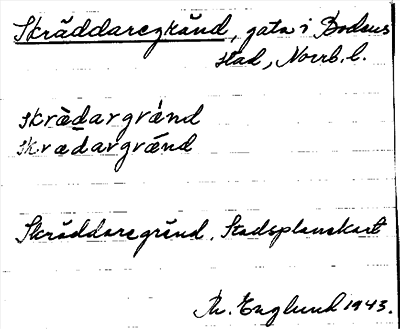 Skräddaregränd, gata i Bodens
stad, Norrb. l.
skrädargränd
skrädargränd
Skräddaregränd. Stadsplanekart
Th. Englund 1943.